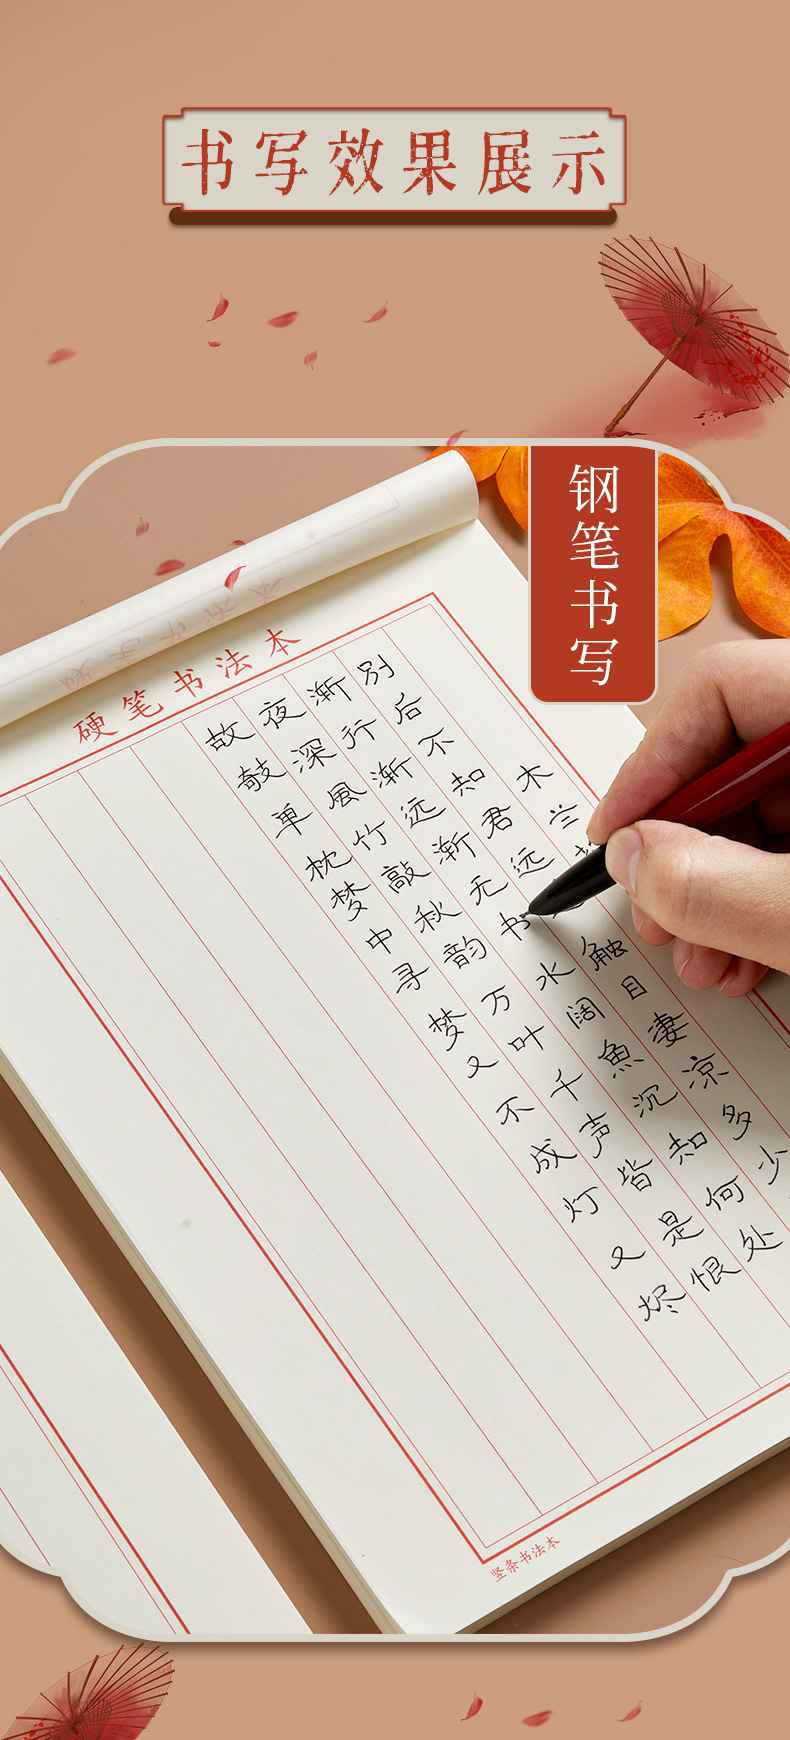 书写效果展示
钢笔书写
硬笔书法本
木兰
别后不知君远触目凄凉多少
渐行渐远渐无书水阔魚沉何处
夜深風竹敲秋韵万叶千声皆是恨
故敧单枕梦中寻梦又不成灯又烬
竖条书法本